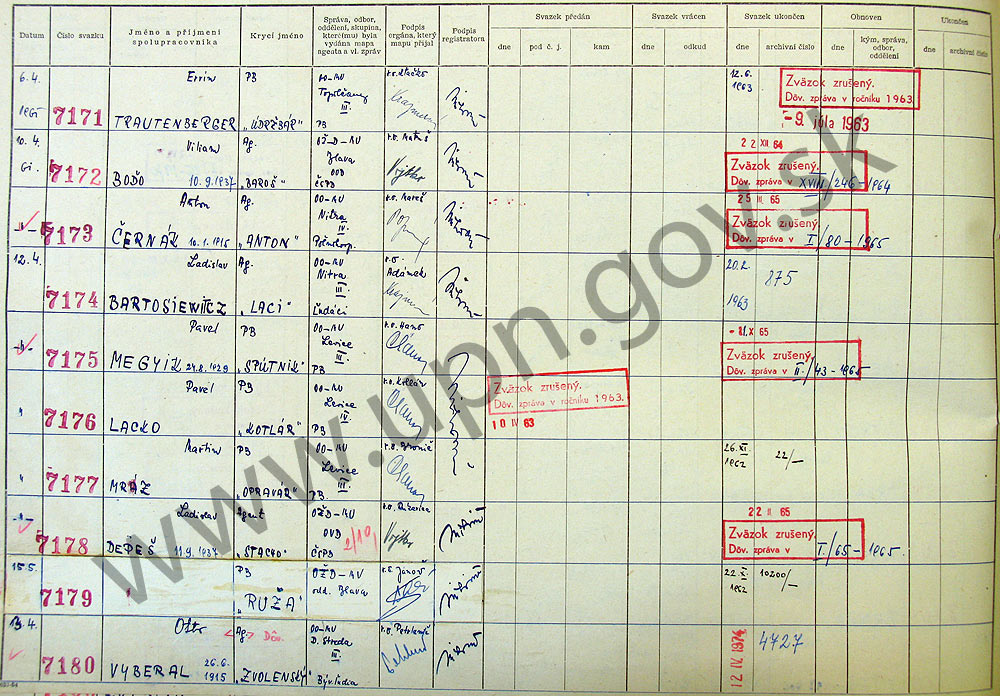 Datum
Číslo svazku
Jméno a příjmení
spolupracovníka
Krycí jméno
Správa, odbor,
oddělení, skupina,
které(mu) byla
vydána mapa
agenta a vl. zpráv
Podpis
orgána, který
mapu přijal
Podpis
registratora
Svazek předán
dne
pod č. j.
kam
Svazek vrácen
dne
odkud
Svazek ukončen
dne
archivní číslo
Obnoven
dne
kým, správa,
odbor,
oddělení
Ukončen
dne
archivní číslo
6.4.
7171
TRAUTENBERGER
PB
„ÚDRŽBÁR"
OO-MV
III
PB
12.6.
1963
Zväzok zrušený.
Dôv. zpráva v ročníku 1963.
-9. júla 1963
10.4.
7172
Viliam
BOĎO 10.9.1937
Ag.
„BAROŠ"
OŽD-MV
Ilava
OVD
ČŠPD
22 XII 64
Zväzok zrušený.
Dôv. zpráva v XVIII/246-1964
7173
Anton
ČERNÁK 10.1.1915
Ag.
„ANTON"
OO-MV
Nitra
IV.
25 III. 65
Zväzok zrušený.
Dôv. zpráva v I/80-1965
12.4.
7174
Ladislav
BARTOSIEWITCZ
Ag.
„LACI"
OO-MV
Nitra
III
Ľudáci
Adámek
20.2.
1963
875
7175
Pavel
MEGYIK 24.8.1929
PB
„SPÚTNIK"
OO-MV
Levice
III.
PB
X 65
Zväzok zrušený.
Dôv. zpráva v II./43-1965
"
7176
Pavel
LACKO
PB
„KOTLÁŘ"
OO-MV
Levice
IV
PB
Zväzok zrušený.
Dôv. zpráva v ročníku 1963.
10 IV 63
"
7177
Martin
MRÁZ
PB
„OPRAVÁR"
OO-MV
Levice
III
PB
26.XI.
1962
22/-
7178
Ladislav
DEPEŠ 11.9.1937
Agent
„STACHO"
OŽD-MV
OVD
ČŠPD
2/10
22 II 65
Zväzok zrušený.
Dôv. zpráva v I./65-1965.
15.5.
7179
PB
„RUŽA"
OŽD-MV
odd. Ilava
22.X.
1962
10200/-
13.4.
7180
Otto
VYBERAL 26.6.
1915
Ag.
Dôv.
„ZVOLENSKÝ"
OO-MV
D. Streda
III.
12 IV. 1974
4727
www.upn.gov.sk